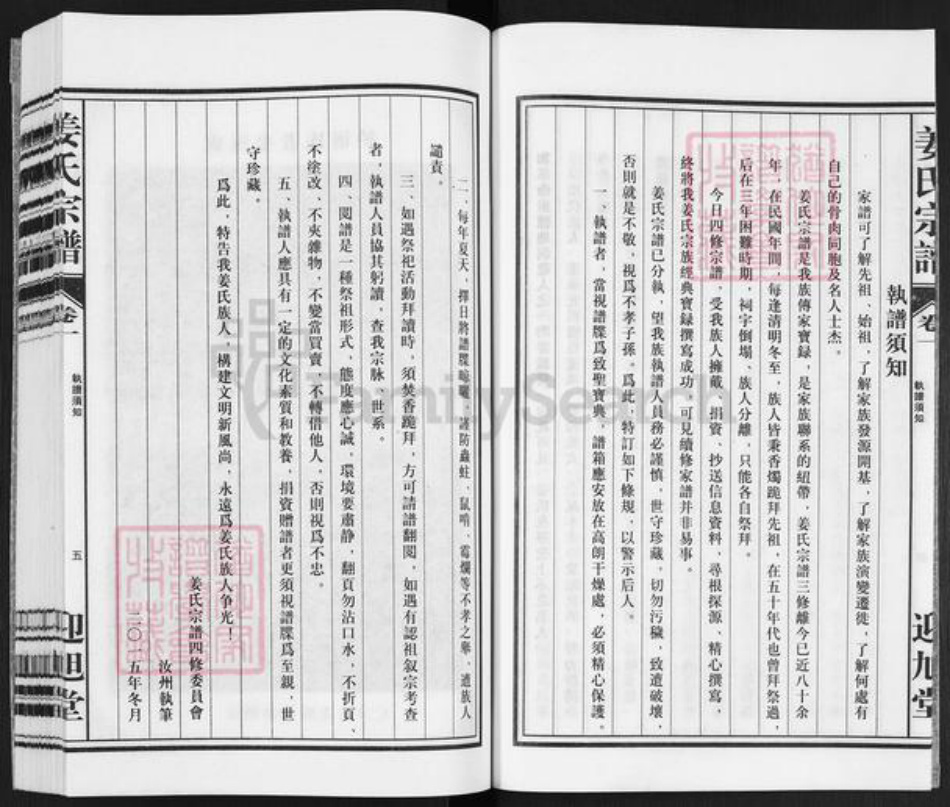 姜氏宗譜
卷一
執譜須知
迎旭堂
執譜須知
家譜可了解先祖、始祖，了解家族發源開基，了解家族演變遷徙，了解何處有
自己的骨肉同胞及名人士杰。
姜氏宗譜是我族傳家寶録，是家族聯系的紐帶，姜氏宗譜三修離今已近八十余
年，在民國年間，每逢清明冬至，族人皆秉香燭跪拜先祖，在五十年代也曾拜祭過，
后在三年困難時期，祠宇倒塌、族人分離，只能各自祭拜。
今日四修宗譜，受我族人擁戴，捐資、抄送信息資料，尋根探源、精心撰寫，
終將我姜氏宗族經典寶録撰寫成功，可見續修家譜并非易事。
姜氏宗譜已分執，望我族執譜人員務必謹慎，世守珍藏，切勿污穢，致遭破壞，
否則就是不敬，視爲不孝子孫。爲此，特訂如下條規，以警示后人。
一、執譜者，當視譜牒爲致聖寶典，譜箱應安放在高朗干燥處，必須精心保護。
二、每年夏天，擇日將譜牒晾曬，謹防蟲蛀、鼠啃、霉爛等不孝之舉，遭族人
譴責。
三、如遇祭祀活動拜讀時，須焚香跪拜，方可請譜翻閱，如遇有認祖叙宗考查
者，執譜人員協其躬讀，查我宗脉、世系。
四、閱譜是一種祭祖形式，態度應心誠，環境要肅静，翻頁勿沾口水，不折頁、
不塗改、不夾雜物，不變當買賣，不轉借他人，否則視爲不忠。
五、執譜人應具有一定的文化素質和教養，捐資贈譜者更須視譜牒爲至親，世
守珍藏。
爲此，特告我姜氏族人，構建文明新風尚，永遠爲姜氏族人争光！
姜氏宗譜四修委員會
汝州執筆
二〇一五年冬月
姜氏宗譜
卷一
執譜須知
五
迎旭堂
FamilySearch